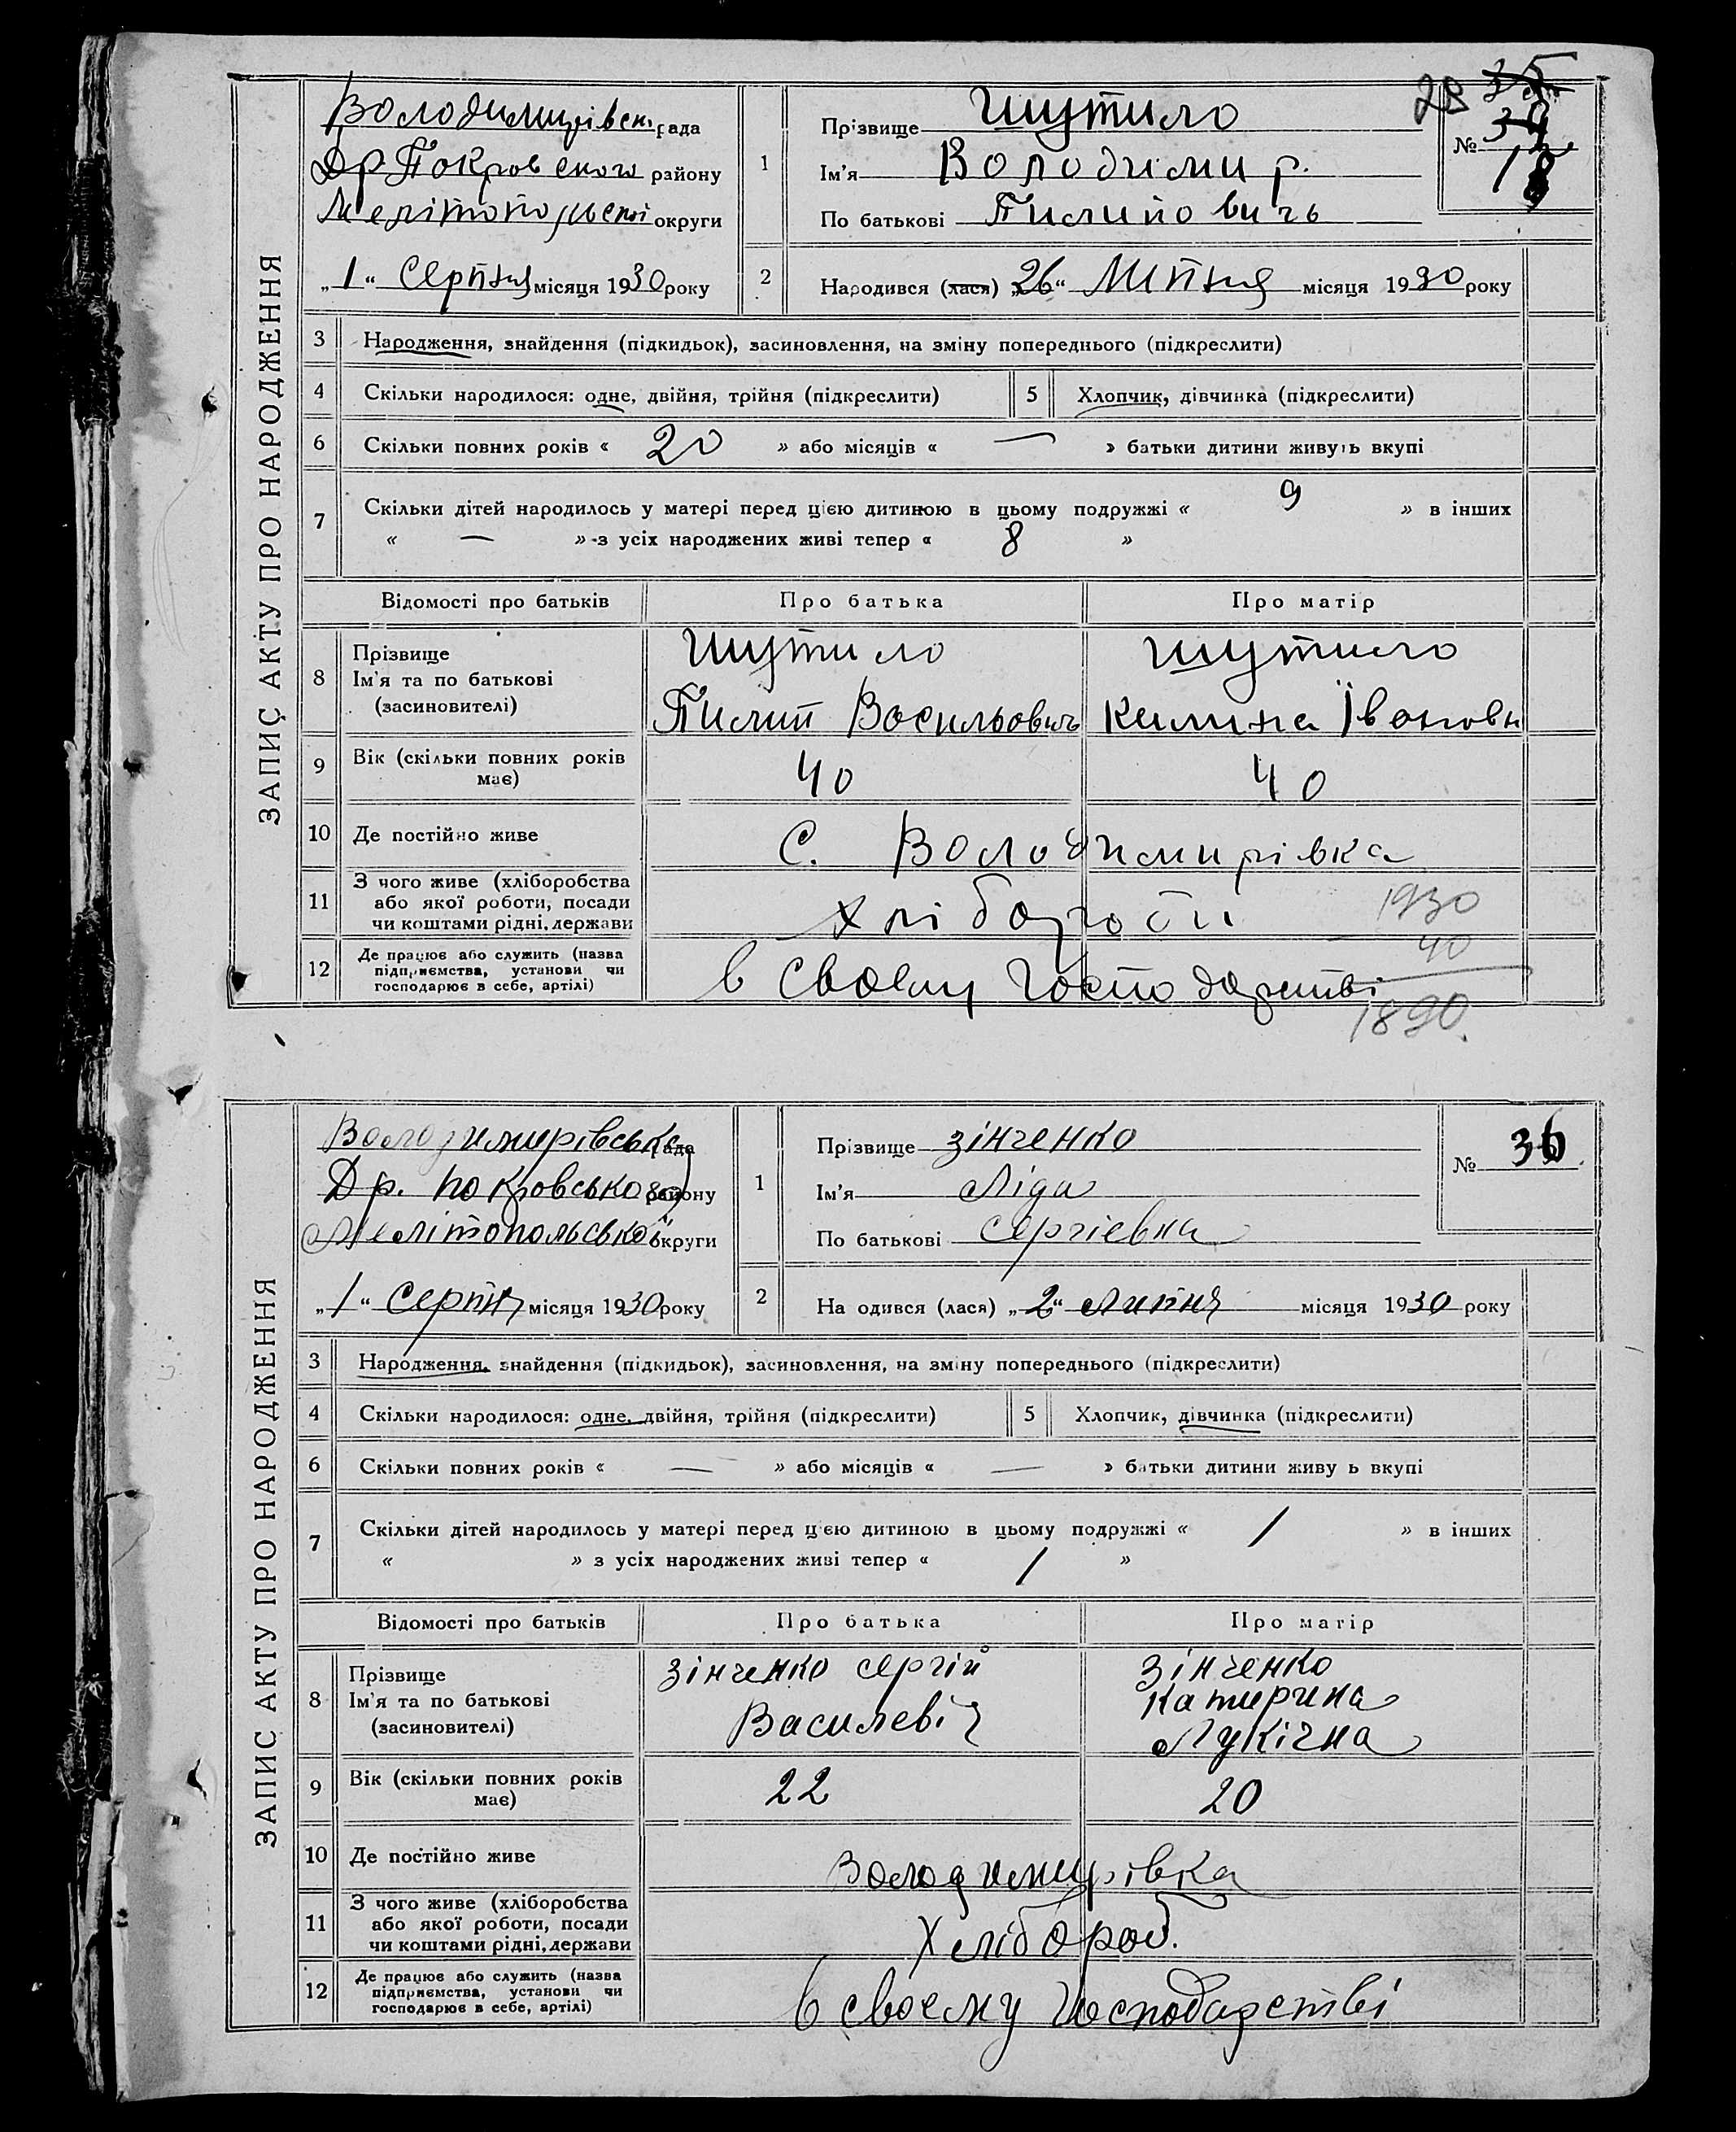 ЗАПИС АКТУ ПРО НАРОДЖЕННЯ
Володимирівськ. рада
Др. Покровского району
Мелітопольської округи
„1“ Серпня місяця 1930 року
1
Прізвище Шутило
Ім'я Володимир.
По батькові Пилиповичь
28 35
№ 34
18
2
Народився (лася) „26“ Липня місяця 1930 року
3 Народження, знайдення (підкидьок), засиновлення, на зміну попереднього (підкреслити)
4 Скільки народилося: одне, двійня, трійня (підкреслити) 5 Хлопчик, дівчинка (підкреслити)
6 Скільки повних років « 20 » або місяців « — » батьки дитини живуть вкупі
7 Скільки дітей народилось у матері перед цією дитиною в цьому подружжі « 9 » в інших
« — » з усіх народжених живі тепер « 8 »
Відомості про батьків Про батька Про матір
8 Прізвище
Ім'я та по батькові
(засиновителі)
Шутило
Пилип Васильовичь
Шутило
Килина Івановн
9 Вік (скільки повних років
має)
40 40
10 Де постійно живе С. Володимирівка
11 З чого живе (хліборобства
або якої роботи, посади
чи коштами рідні, держави
Хлібороби
12 Де працює або служить (назва
підприємства, установи чи
господарює в себе, артілі)
в своєму Господарстві
1930
40
1890.
ЗАПИС АКТУ ПРО НАРОДЖЕННЯ
Володимирівська рада
Др. Покровського району
Мелітопольської округи
„1“ Серпня місяця 1930 року
1
Прізвище Зінченко
Ім'я Ліда
По батькові Сергіевна
№ 36
2
На одився (лася) „2“ Липня місяця 1930 року
3 Народження, знайдення (підкидьок), засиновлення, на зміну попереднього (підкреслити)
4 Скільки народилося: одне, двійня, трійня (підкреслити) 5 Хлопчик, дівчинка (підкреслити)
6 Скільки повних років « — » або місяців « — » батьки дитини живу ь вкупі
7 Скільки дітей народилось у матері перед цією дитиною в цьому подружжі « 1 » в інших
« » з усіх народжених живі тепер « 1 »
Відомості про батьків Про батька Про матір
8 Прізвище
Ім'я та по батькові
(засиновителі)
Зінченко Сергій
Василевіч
Зінченко
Катирина
Лукічна
9 Вік (скільки повних років
має)
22 20
10 Де постійно живе Володимирівка
11 З чого живе (хліборобства
або якої роботи, посади
чи коштами рідні, держави
Хлібороб.
12 Де працює або служить (назва
підприємства, установи чи
господарює в себе, артілі)
в своєму Господарстві